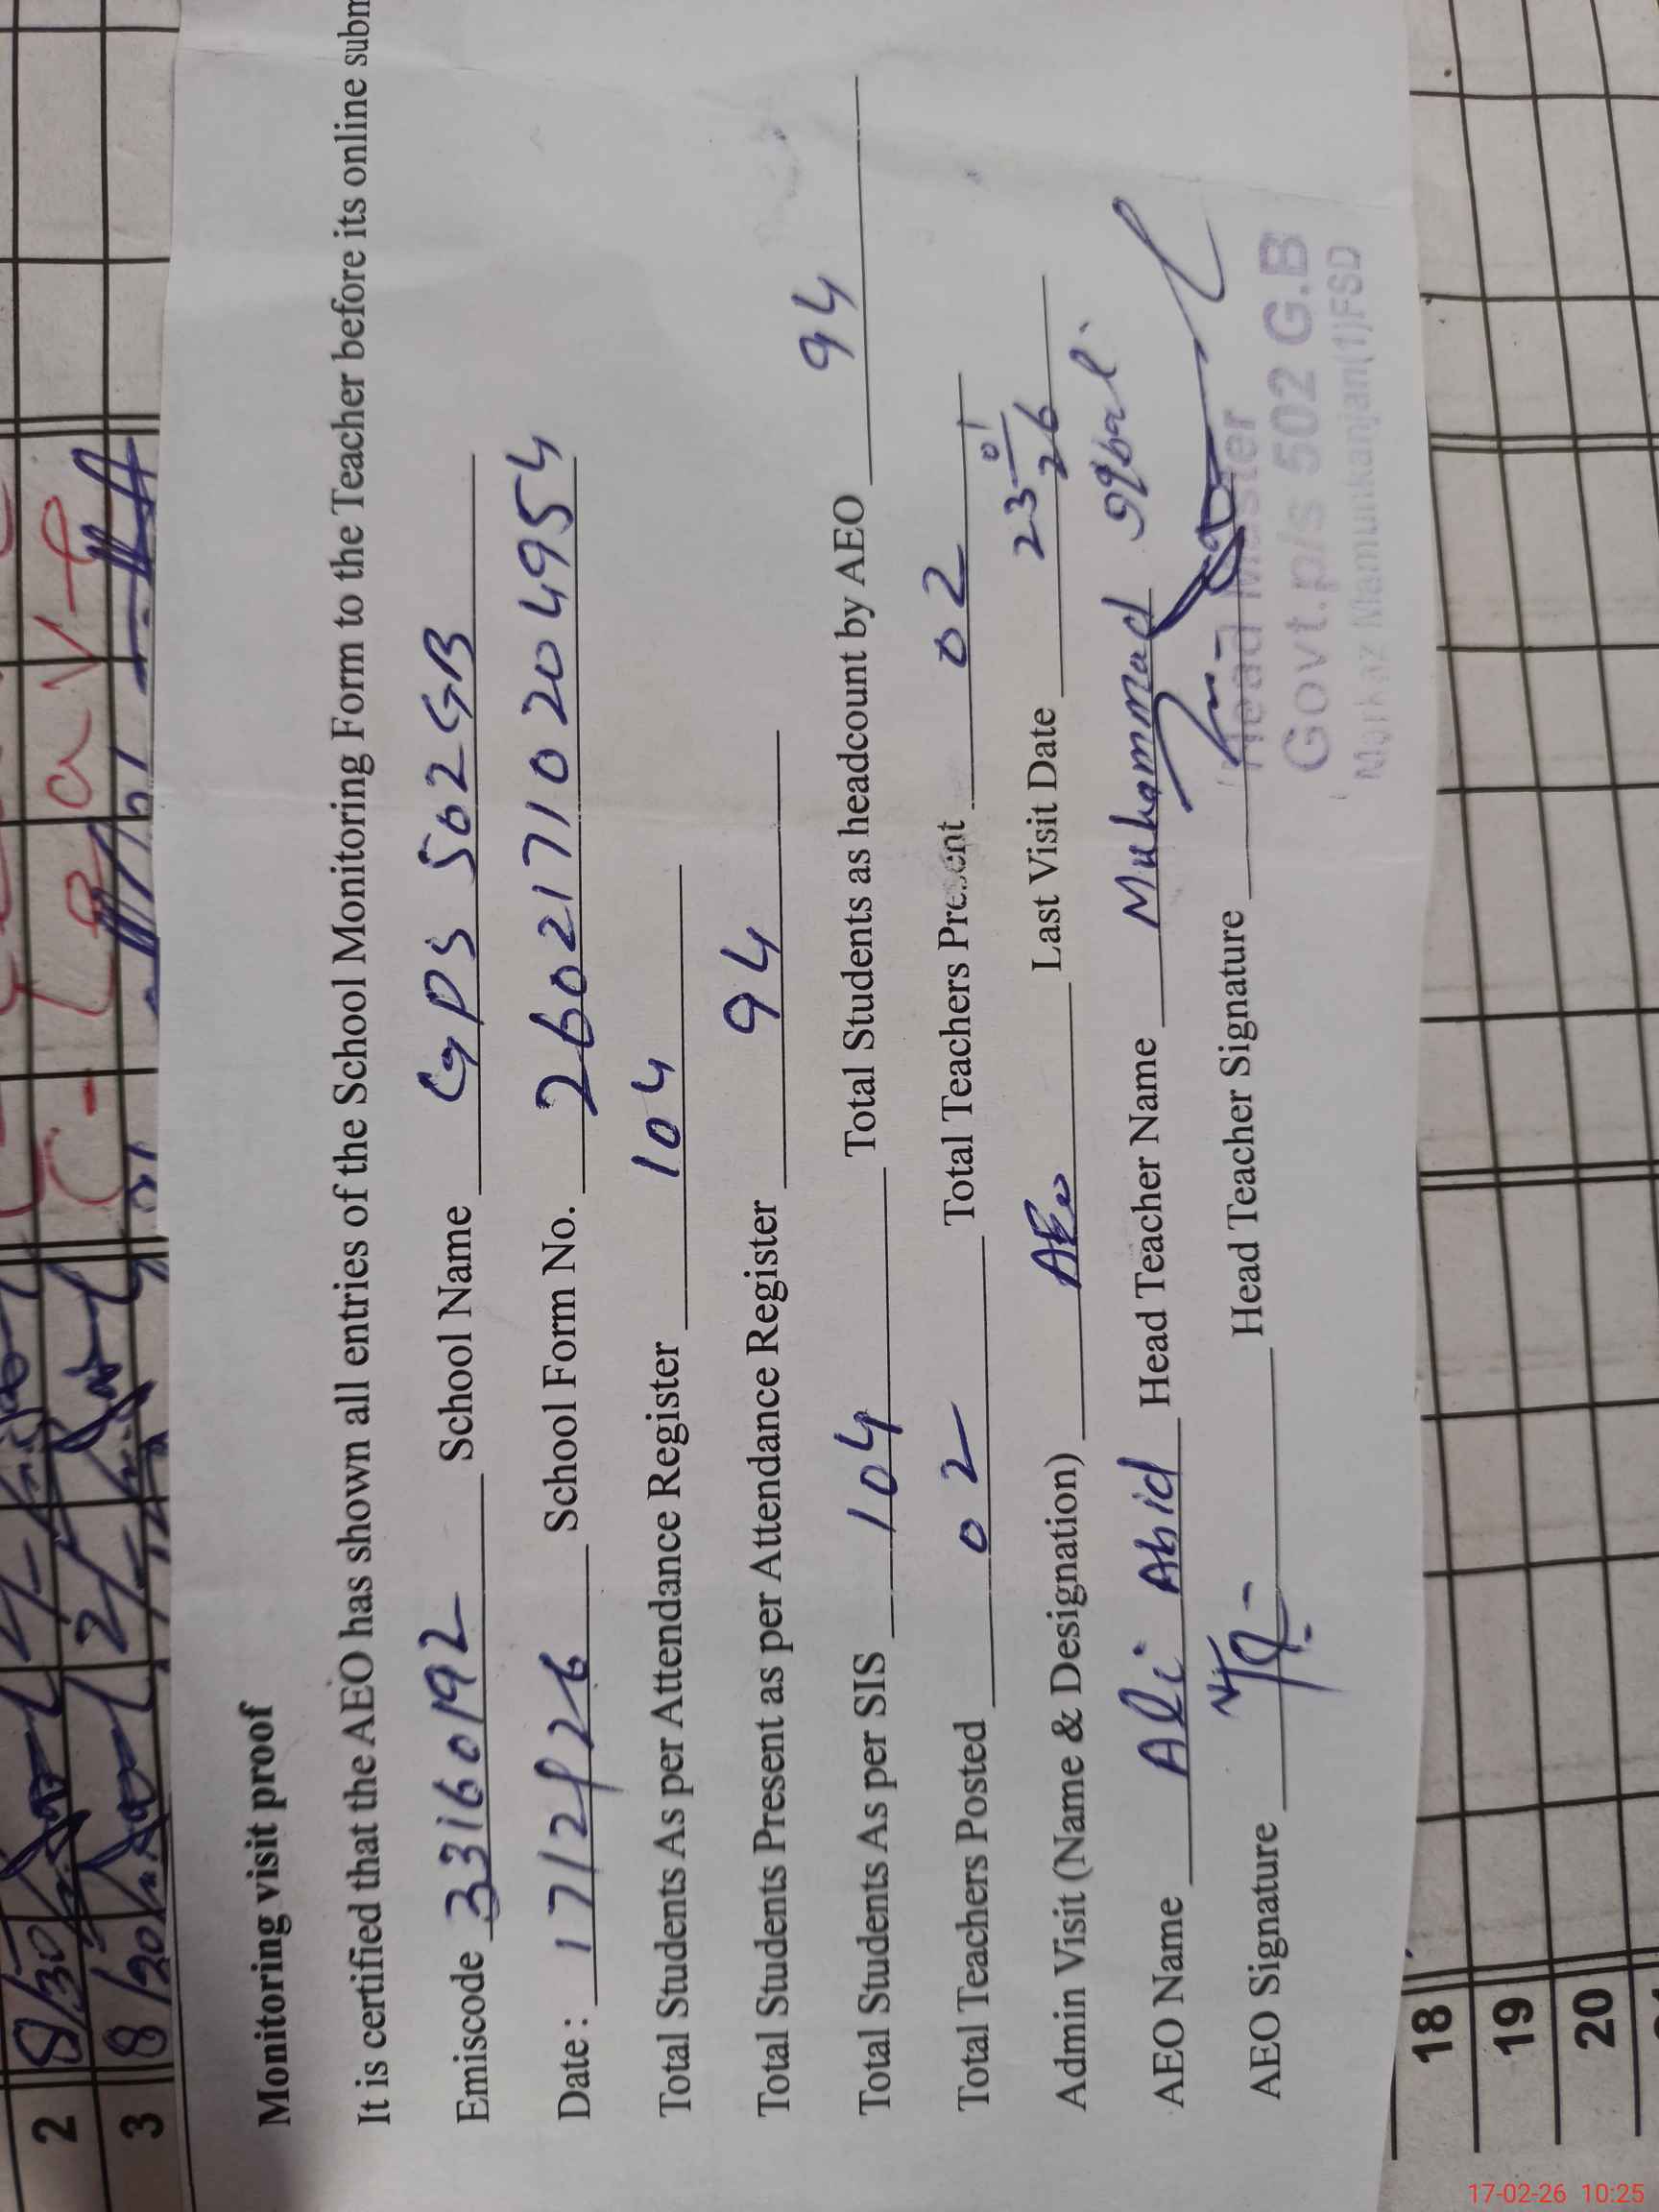 2 8/30
3 8/20
C-Leave
Monitoring visit proof
It is certified that the AEO has shown all entries of the School Monitoring Form to the Teacher before its online subm
Emiscode 33160192 School Name GPS 502GB
Date: 17/2/26 School Form No. 260217102049 54
Total Students As per Attendance Register 104
Total Students Present as per Attendance Register 94
Total Students As per SIS 104 Total Students as headcount by AEO 94
Total Teachers Posted 02 Total Teachers Present 02
Admin Visit (Name & Designation) AEO Last Visit Date 23 01 26
AEO Name Ali Abid Head Teacher Name Muhammad Iqbal.
AEO Signature Head Teacher Signature
Head Master
Govt.p/s 502 G.B
Markaz Mamunkanjan(1)FSD
18
19
20
17-02-26 10:25